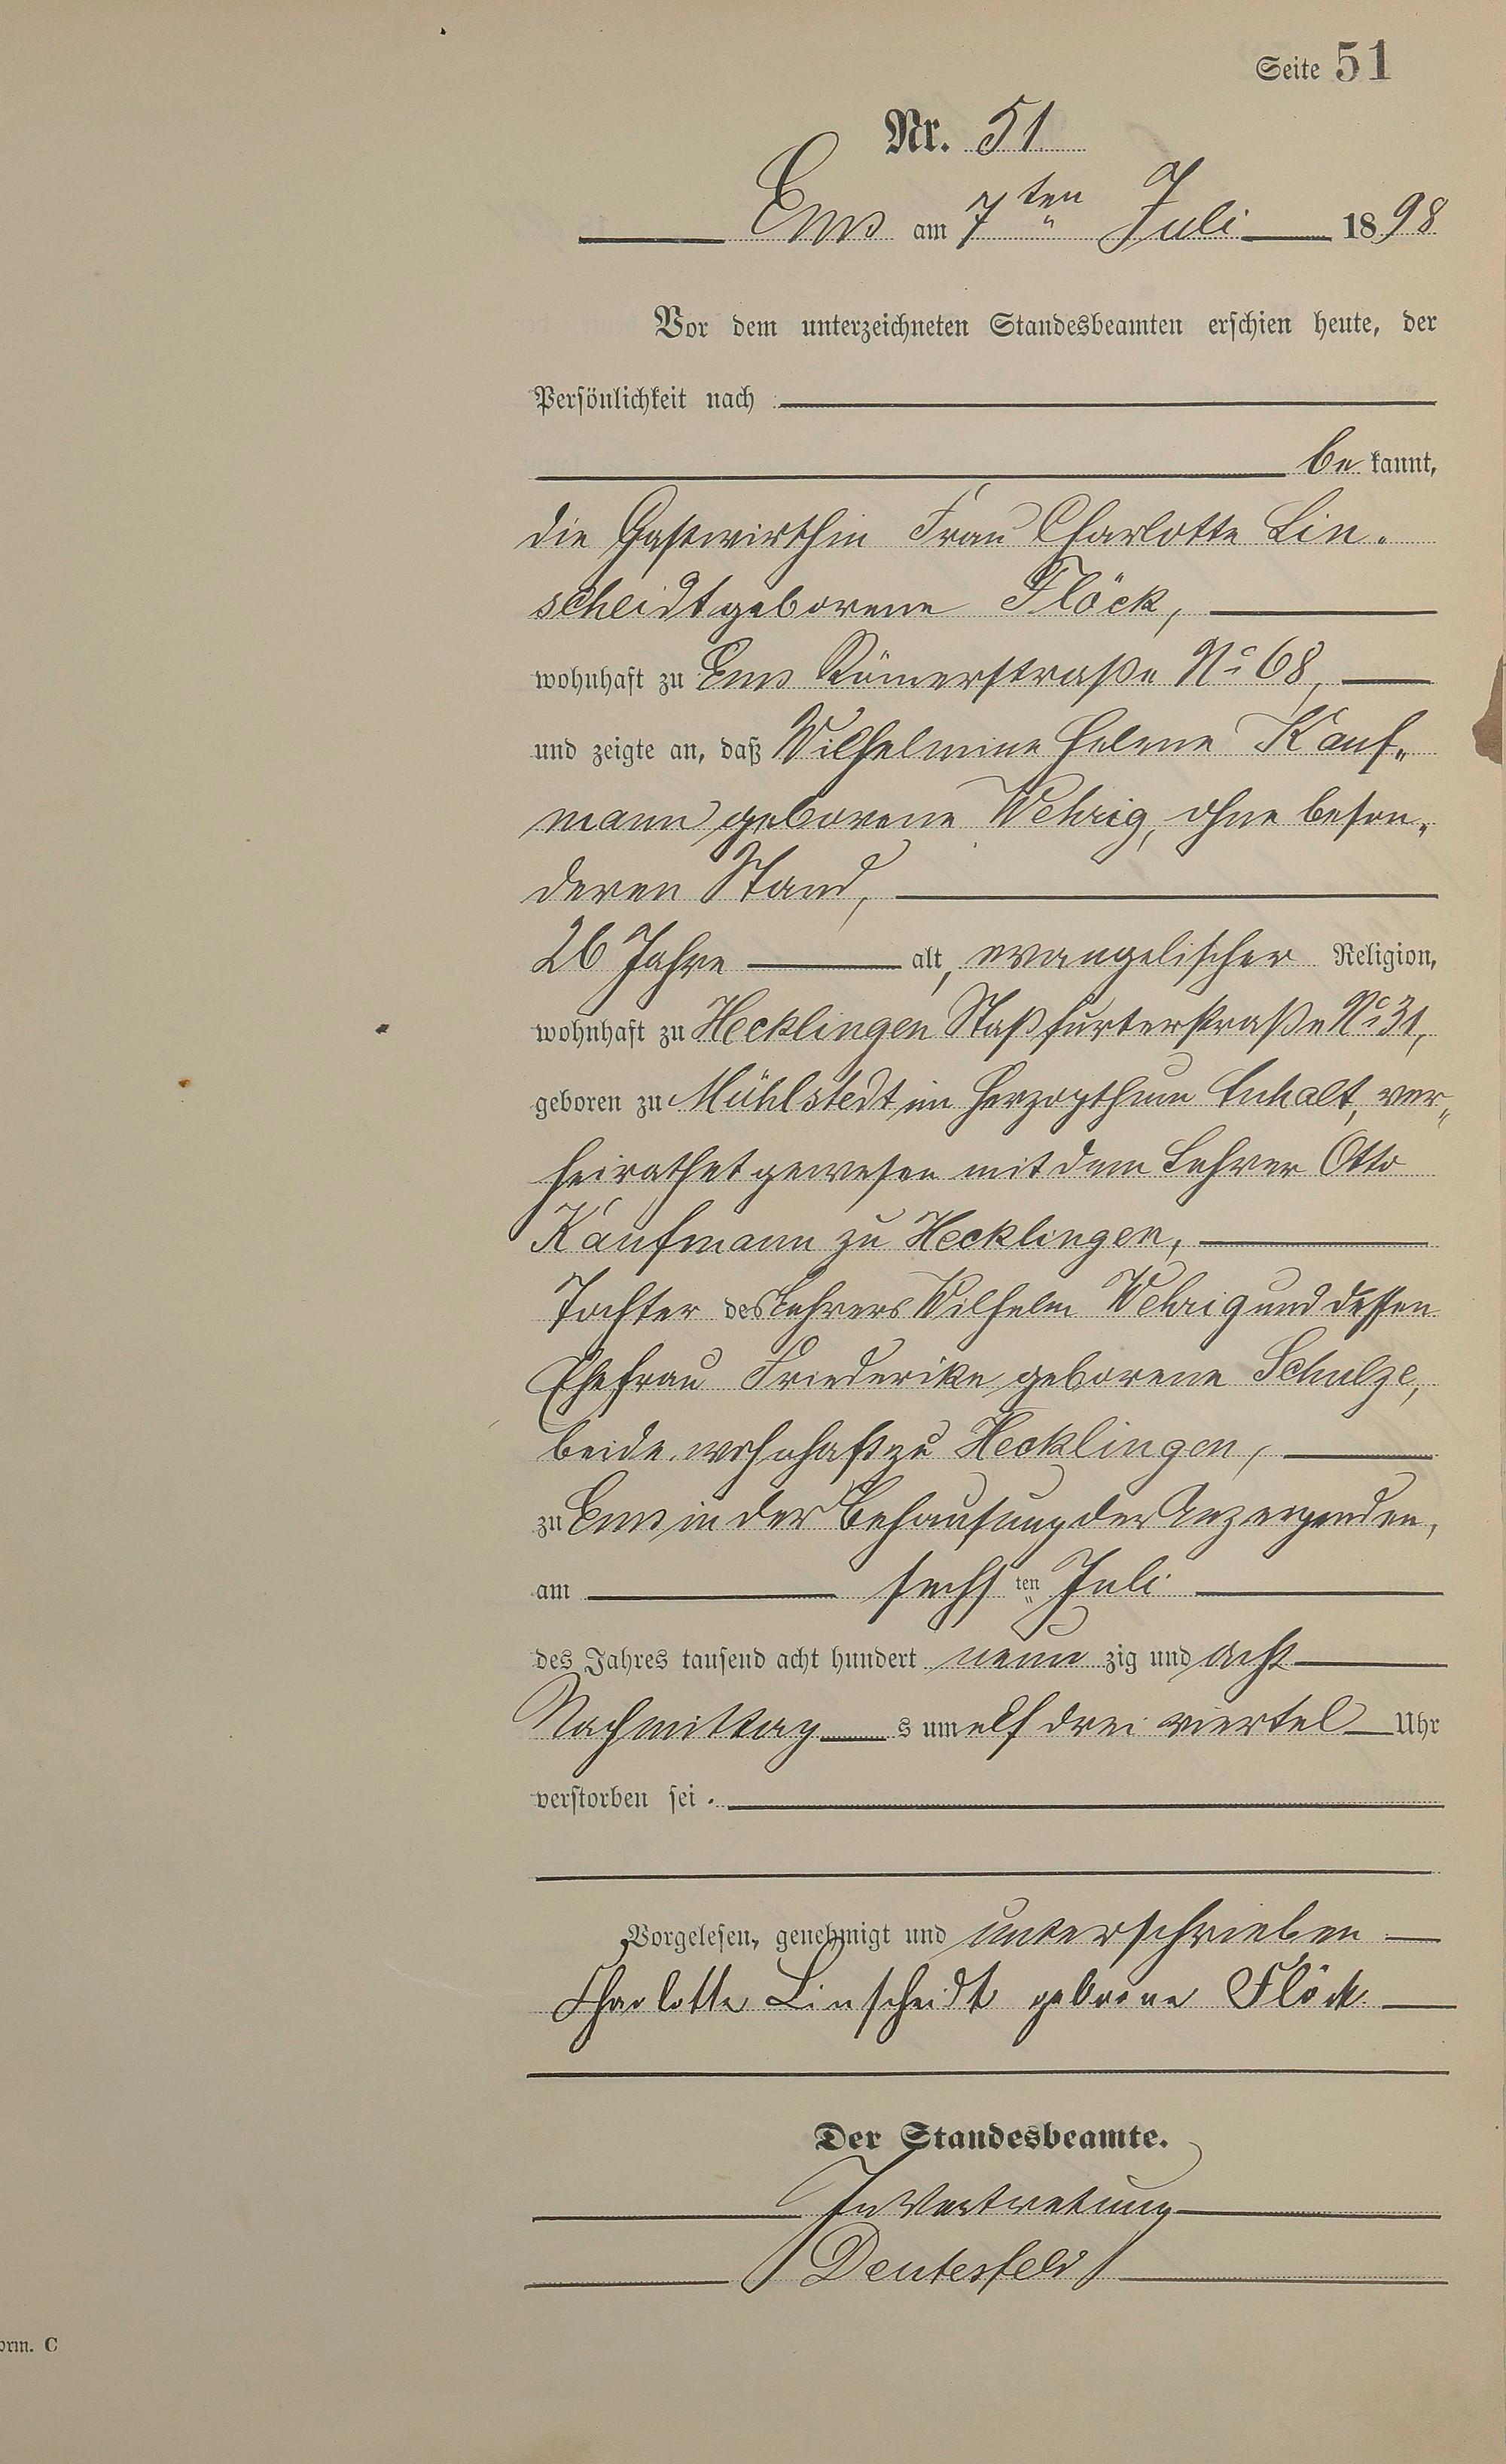 Seite 51
Nr. 51
Ems am 7ten Juli 1898
Vor dem unterzeichneten Standesbeamten erschien heute, der
Persönlichkeit nach
be kannt,
die Gastwirthin Frau Charlotte Lin-
scheidt geborene Flöck,
wohnhaft zu Ems Römerstraße No 68,
und zeigte an, daß Wilhelmine Helene Kauf-
mann geborene Wehrig, ohne beson-
deren Stand,
26 Jahre alt, evangelischer Religion,
wohnhaft zu Hecklingen Staßfurterstraße No 31,
geboren zu Mühlstedt im Herzogthum Anhalt, ver-
heirathet gewesen mit dem Lehrer Otto
Kaufmann zu Hecklingen,
Tochter des Lehrers Wilhelm Wehrig und dessen
Ehefrau Friederike geborene Schulze,
beide wohnhaft zu Hecklingen,
zu Ems in der Behausung der Anzeigenden,
am sechsten Juli
des Jahres tausend acht hundert neun zig und acht
Nachmittags um elf drei viertel Uhr
verstorben sei.
Vorgelesen, genehmigt und unterschrieben
Charlotte Linscheidt geborene Flöck
Der Standesbeamte.
In Vertretung
Deutesfeld
orm. C